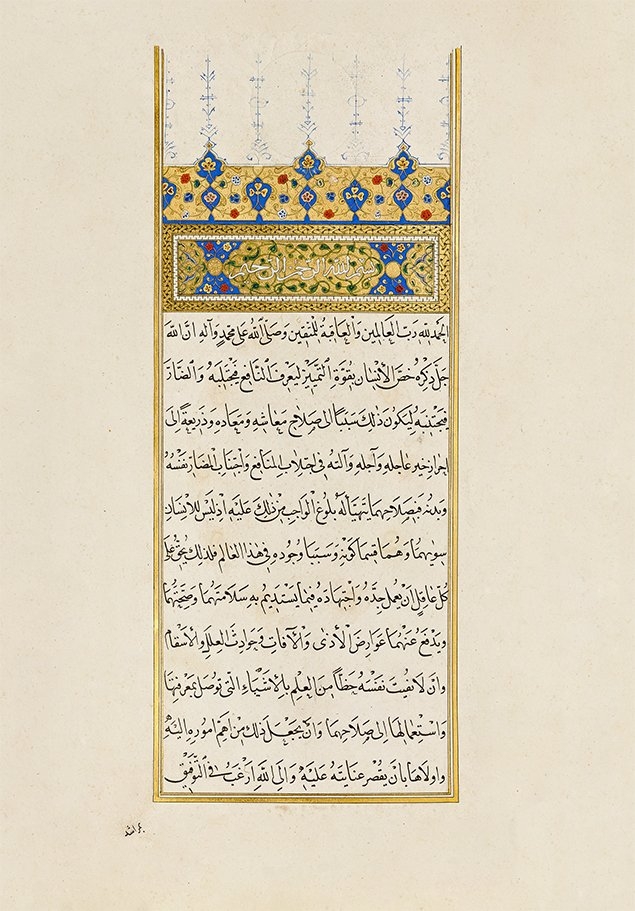 بسم الله الرحمن الرحيم
الحمد لله رب العالمين والعاقبة للمتقين وصلى الله على محمد وآله ان الله
جل ذكره خص الأنسان بقوة التمييز ليعرف النافع فيجتلبه والضار
فيجتنبه ليكون ذلك سببا الى صلاح معاشه ومعاده وذريعة إلى
احراز خير عاجله وآجله وآلته في اجتلاب المنافع واجتناب المضار نفسه
وبدنه فبصلاحهما يتهيأ له بلوغ الواجب من ذلك عليه اذ ليس للانسان
سويهما وهما قسما كونه وسببا وجوده في هذا العالم فلذلك يحق على
كل عاقل ان يعمل جده واجتهاده فيما يستديم به سلامتهما وصحتهما
ويدفع عنهما عوارض الأذى والآفات وحوادث العلل والأسقام
وان لا تفيت نفسه حظا من العلم بالأشياء التى توصل بمعرفتها
واستعمالها إلى صلاحهما وان يجعل ذلك من اهم اموره اليه
واولاها بان يقصر عنايته عليه والى الله ارغب في التوفيق